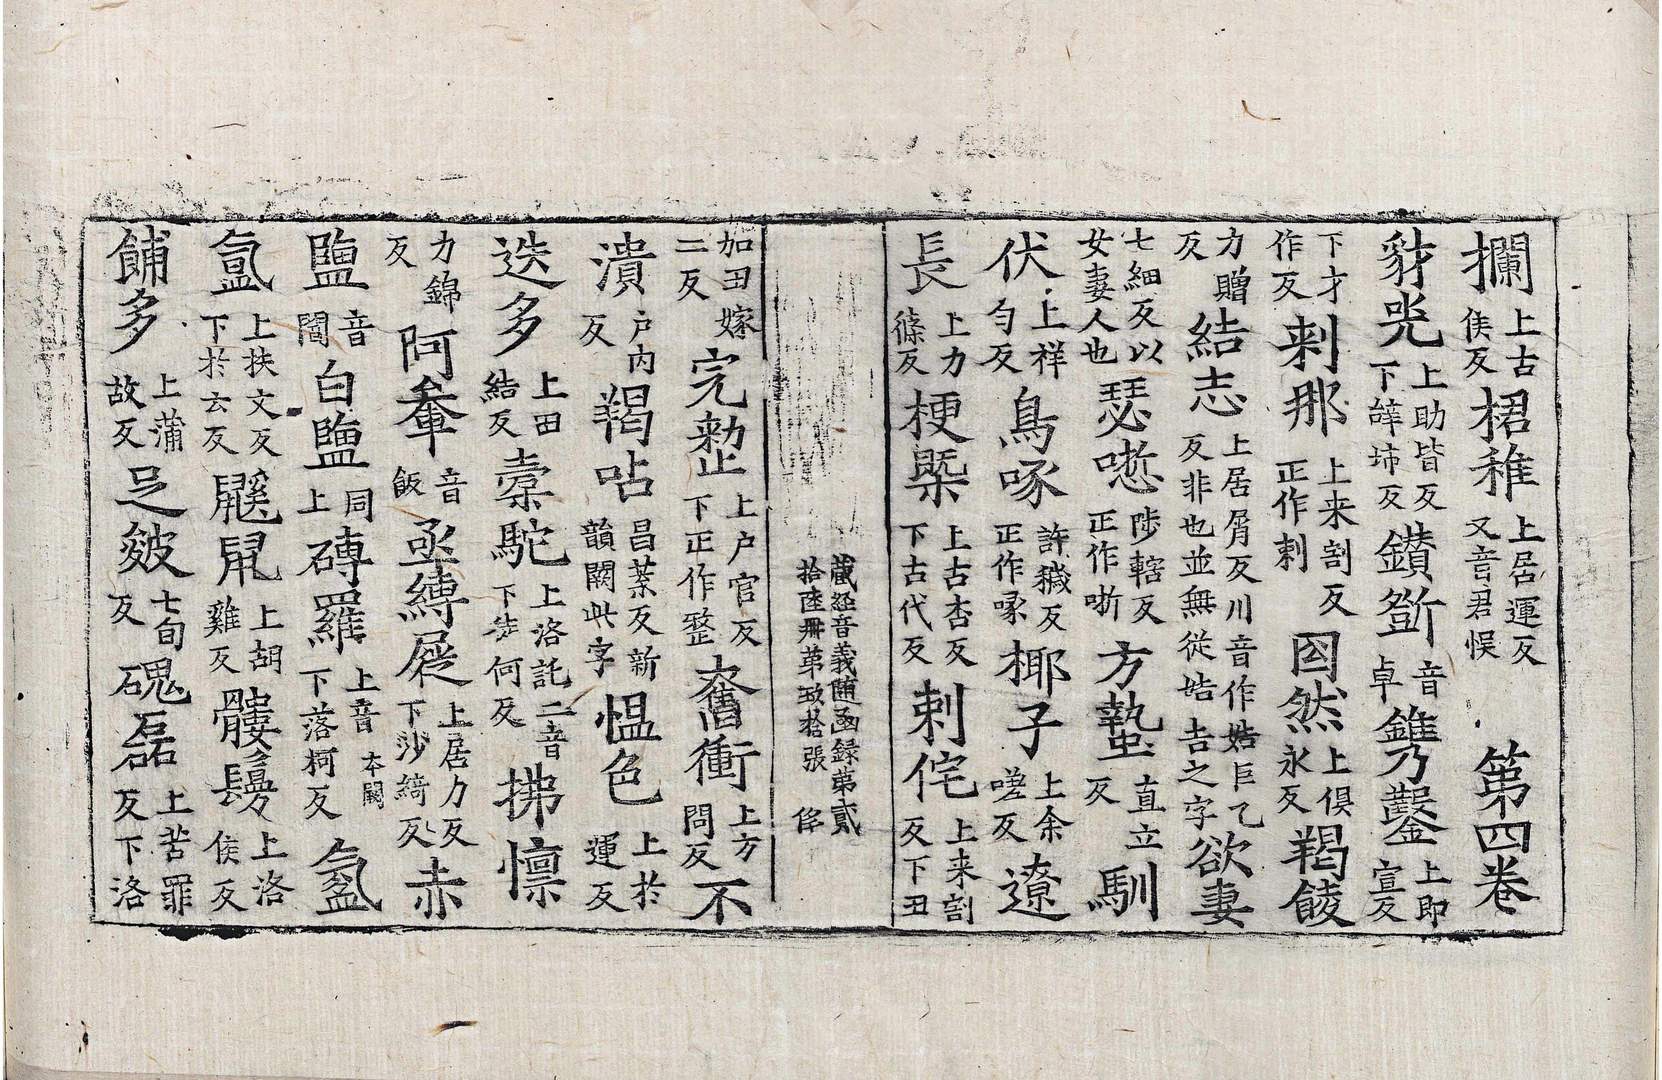 攔上古侯反桾稚上居運反又音君悮第四卷
豺兕上助皆反下辝姊反鑚斵音卓鐫鑿上即宣反
下才作反剌那上来割反正作刺囶然上俱永反羯餕
力贈反結志上居屑反川音作㛃巨乙反非也並無從㛃吉之字欲妻
七細反以女妻人也瑟㘅陟轄反正作哳方蟄直立反馴
伏上祥勻反鳥啄許穢反正作喙椰子上余嗟反遼
長上力篠反梗槩上古杏反下古代反剌侘上来割反下丑
藏經音義随函録第貳拾陸冊第玖拾張
加丑嫁二反完㱏上户官反下正作整奮衝上方問反不
潰户内反羯呫昌葉反新韻闕此字愠色上於運反
迭多上田結反橐駝上洛託二音下徒何反拂懍
力錦反阿軬音飯亟縛屣上居力反下沙綺反赤
鹽音閻白鹽同上磚羅上音本闕下落柯反氤
氳上扶文反下於云反鼷鼠上胡雞反髏鬘上洛侯反
餔多上蒲故反足皴七旬反磈磊上苦罪反下洛